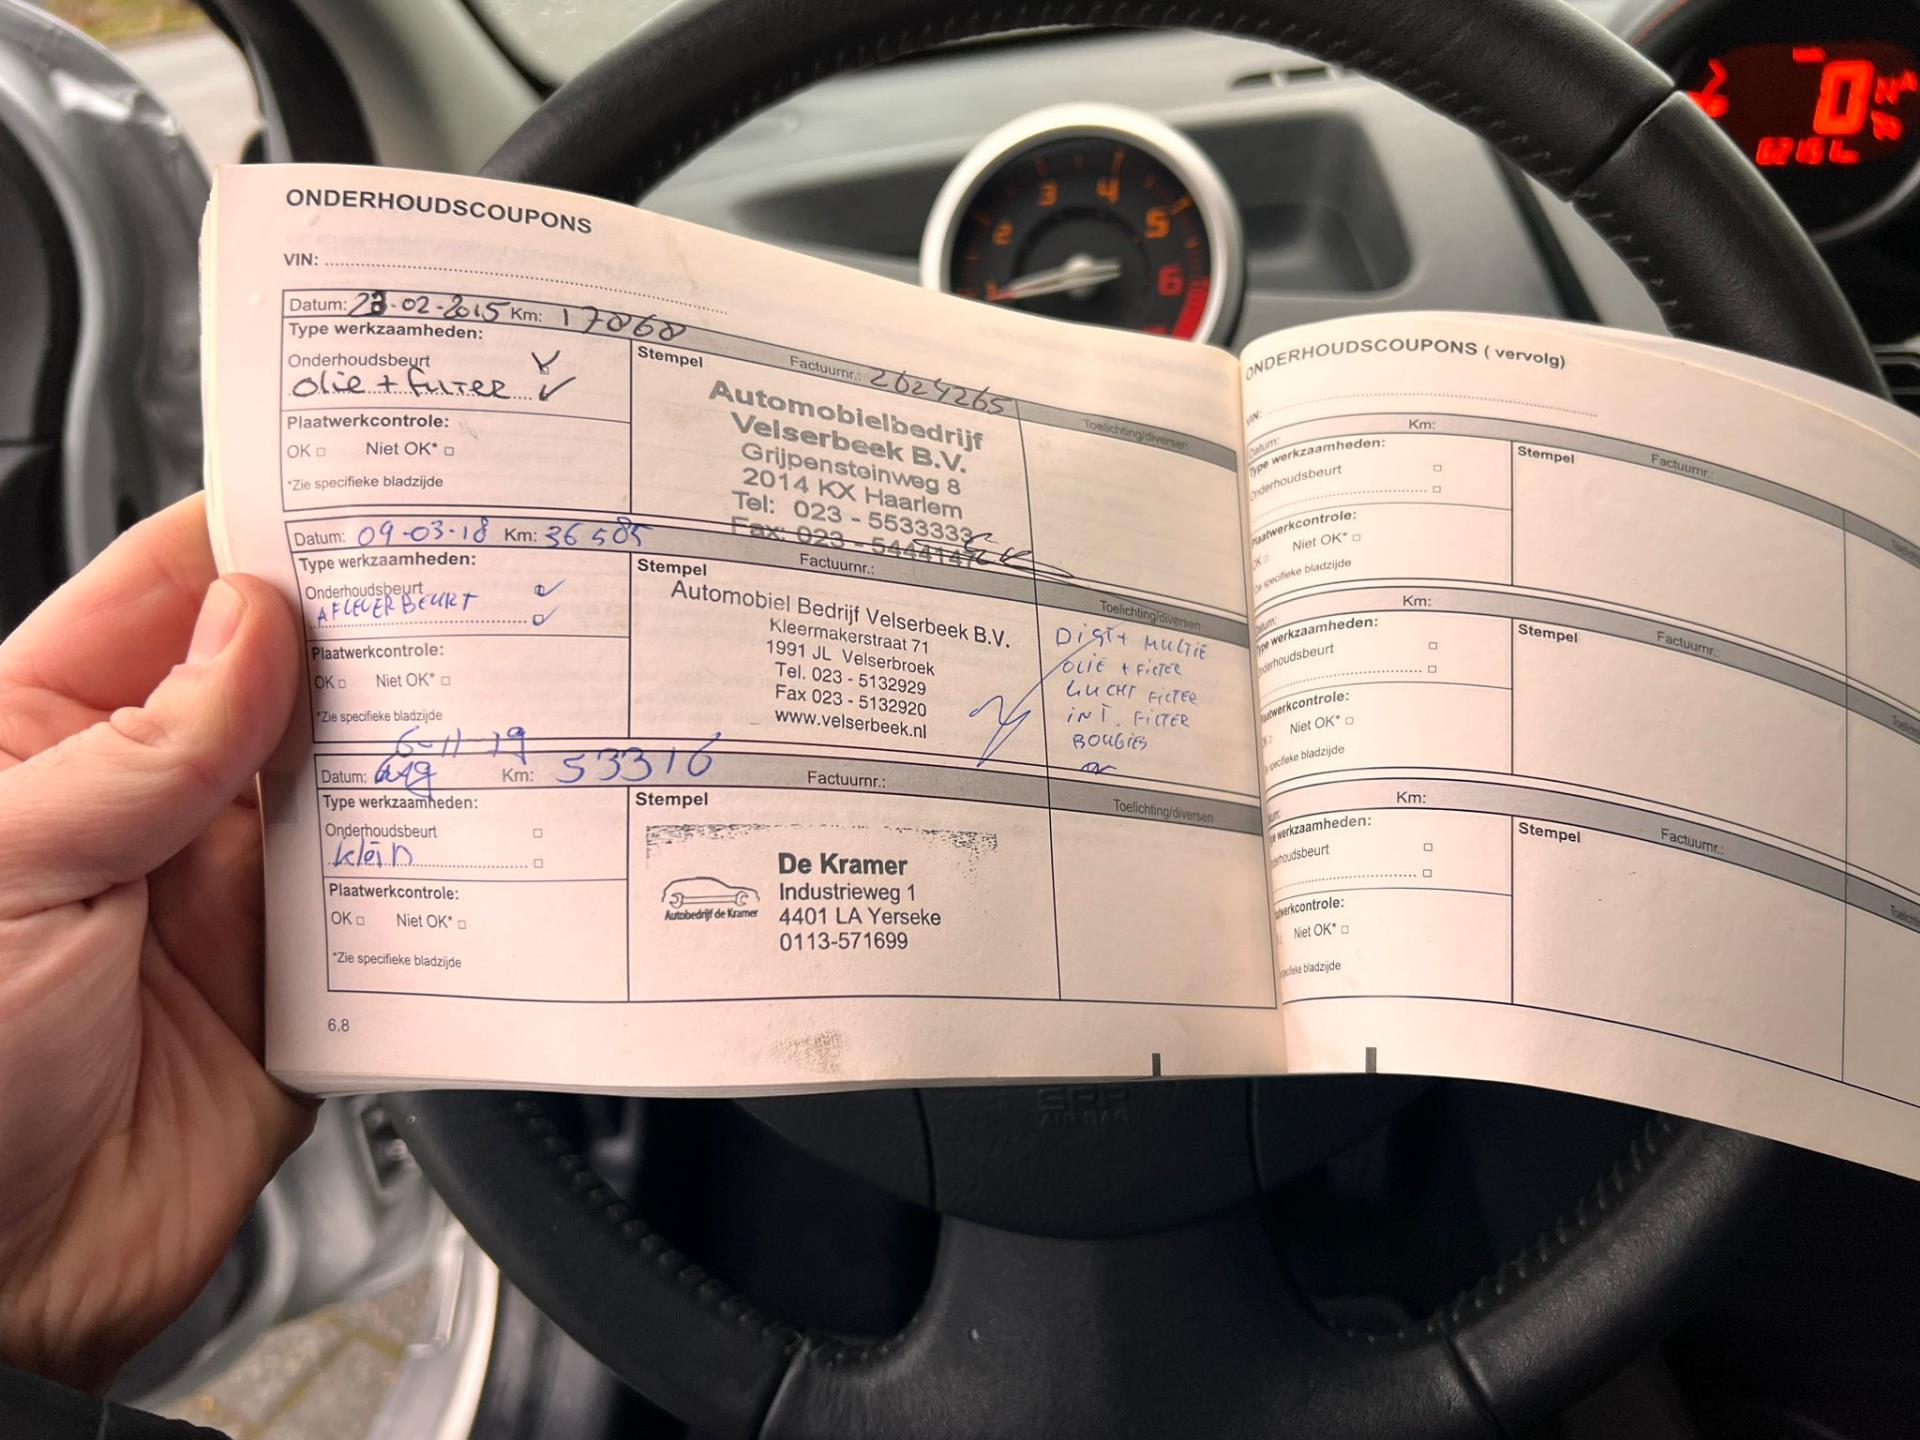 ONDERHOUDSCOUPONS
VIN:
Datum: 23-02-2015 Km: 17868
Type werkzaamheden:
Onderhoudsbeurt
olie + filter
Plaatwerkcontrole:
OK Niet OK*
*Zie specifieke bladzijde
Stempel
Factuurnr.: 2624265
Toelichting/diversen
Automobielbedrijf
Velserbeek B.V.
Grijpensteinweg 8
2014 KX Haarlem
Tel: 023 - 5533333
Fax: 023 - 5444147
Datum: 09-03-18 Km: 36585
Type werkzaamheden:
Onderhoudsbeurt
AFLEVERBEURT
Plaatwerkcontrole:
OK Niet OK*
*Zie specifieke bladzijde
Stempel
Factuurnr.:
Toelichting/diversen
Automobiel Bedrijf Velserbeek B.V.
Kleermakerstraat 71
1991 JL Velserbroek
Tel. 023 - 5132929
Fax 023 - 5132920
www.velserbeek.nl
OLIE + FILTER
LUCHT FILTER
INT. FILTER
BOUGIES
6-11-19
Datum: Km: 53316
Type werkzaamheden:
Onderhoudsbeurt
klein
Plaatwerkcontrole:
OK Niet OK*
*Zie specifieke bladzijde
Stempel
Factuurnr.:
Toelichting/diversen
De Kramer
Industrieweg 1
4401 LA Yerseke
0113-571699
Autobedrijf de Kramer
6.8
ONDERHOUDSCOUPONS ( vervolg)
VIN:
Datum: Km:
Type werkzaamheden:
Onderhoudsbeurt
Plaatwerkcontrole:
Niet OK*
specifieke bladzijde
Stempel
Factuurnr.:
Datum: Km:
Type werkzaamheden:
Onderhoudsbeurt
Plaatwerkcontrole:
Niet OK*
specifieke bladzijde
Stempel
Factuurnr.:
Km:
werkzaamheden:
Niet OK*
bladzijde
Stempel
Factuurnr.:
2 3 4 5 6
0
AIRBAG